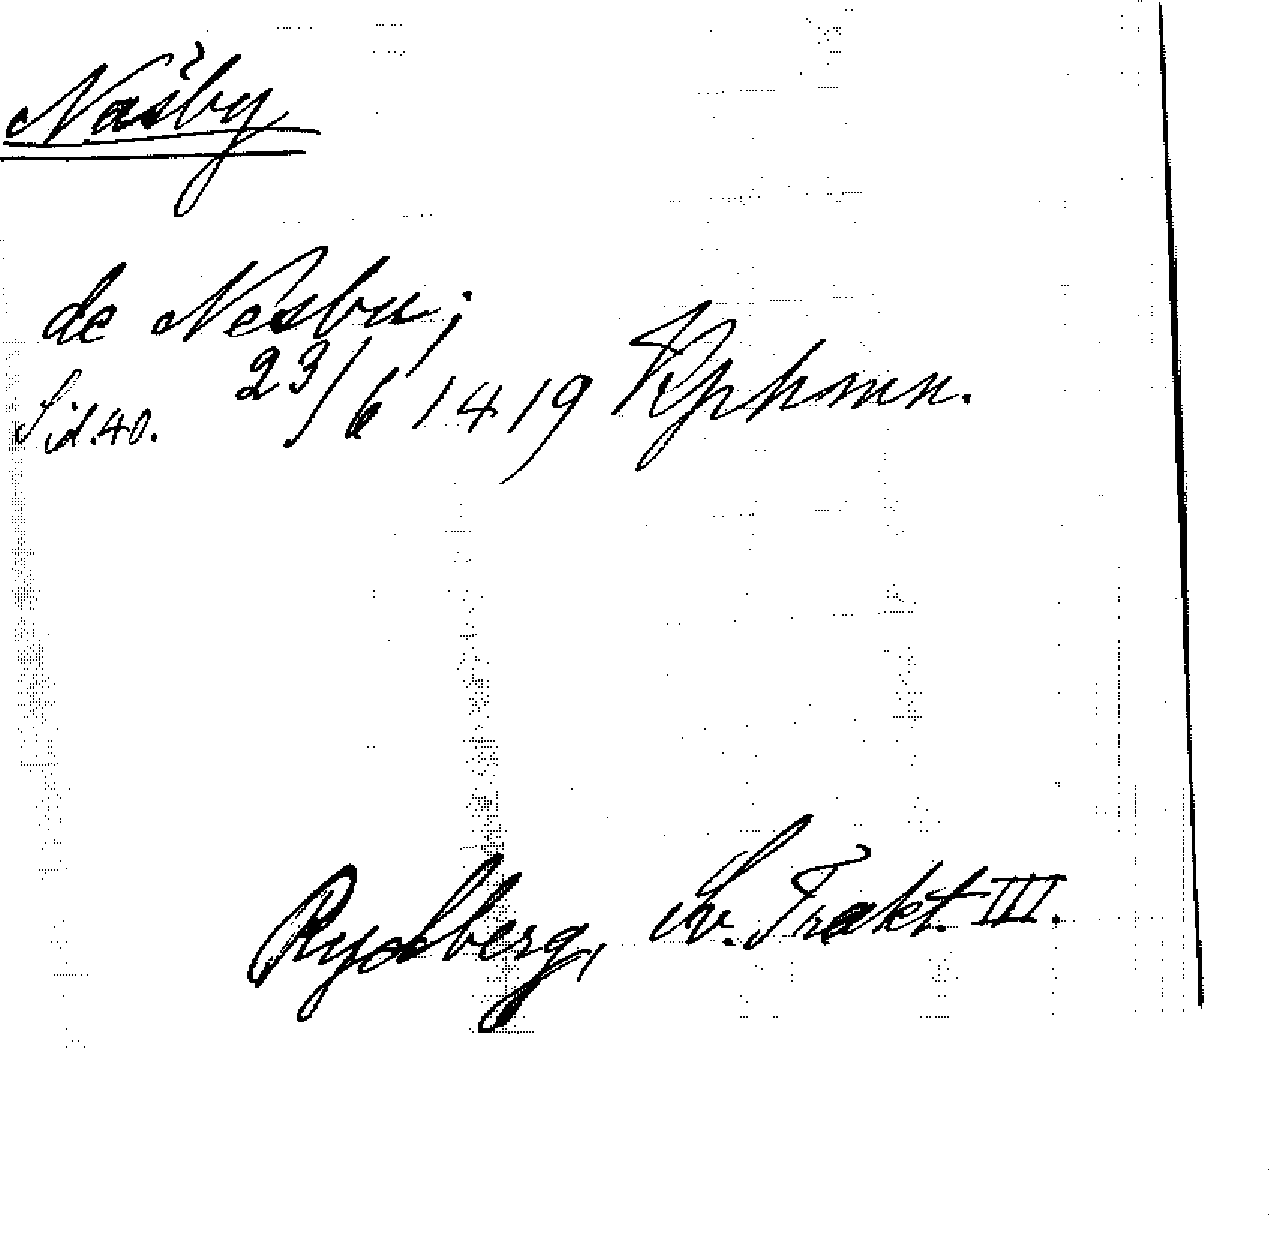 Näsby
de Nesbu;
Sid. 40. 23/6 1419 Kphmn.
Rydberg, Sv. Trakt. III.